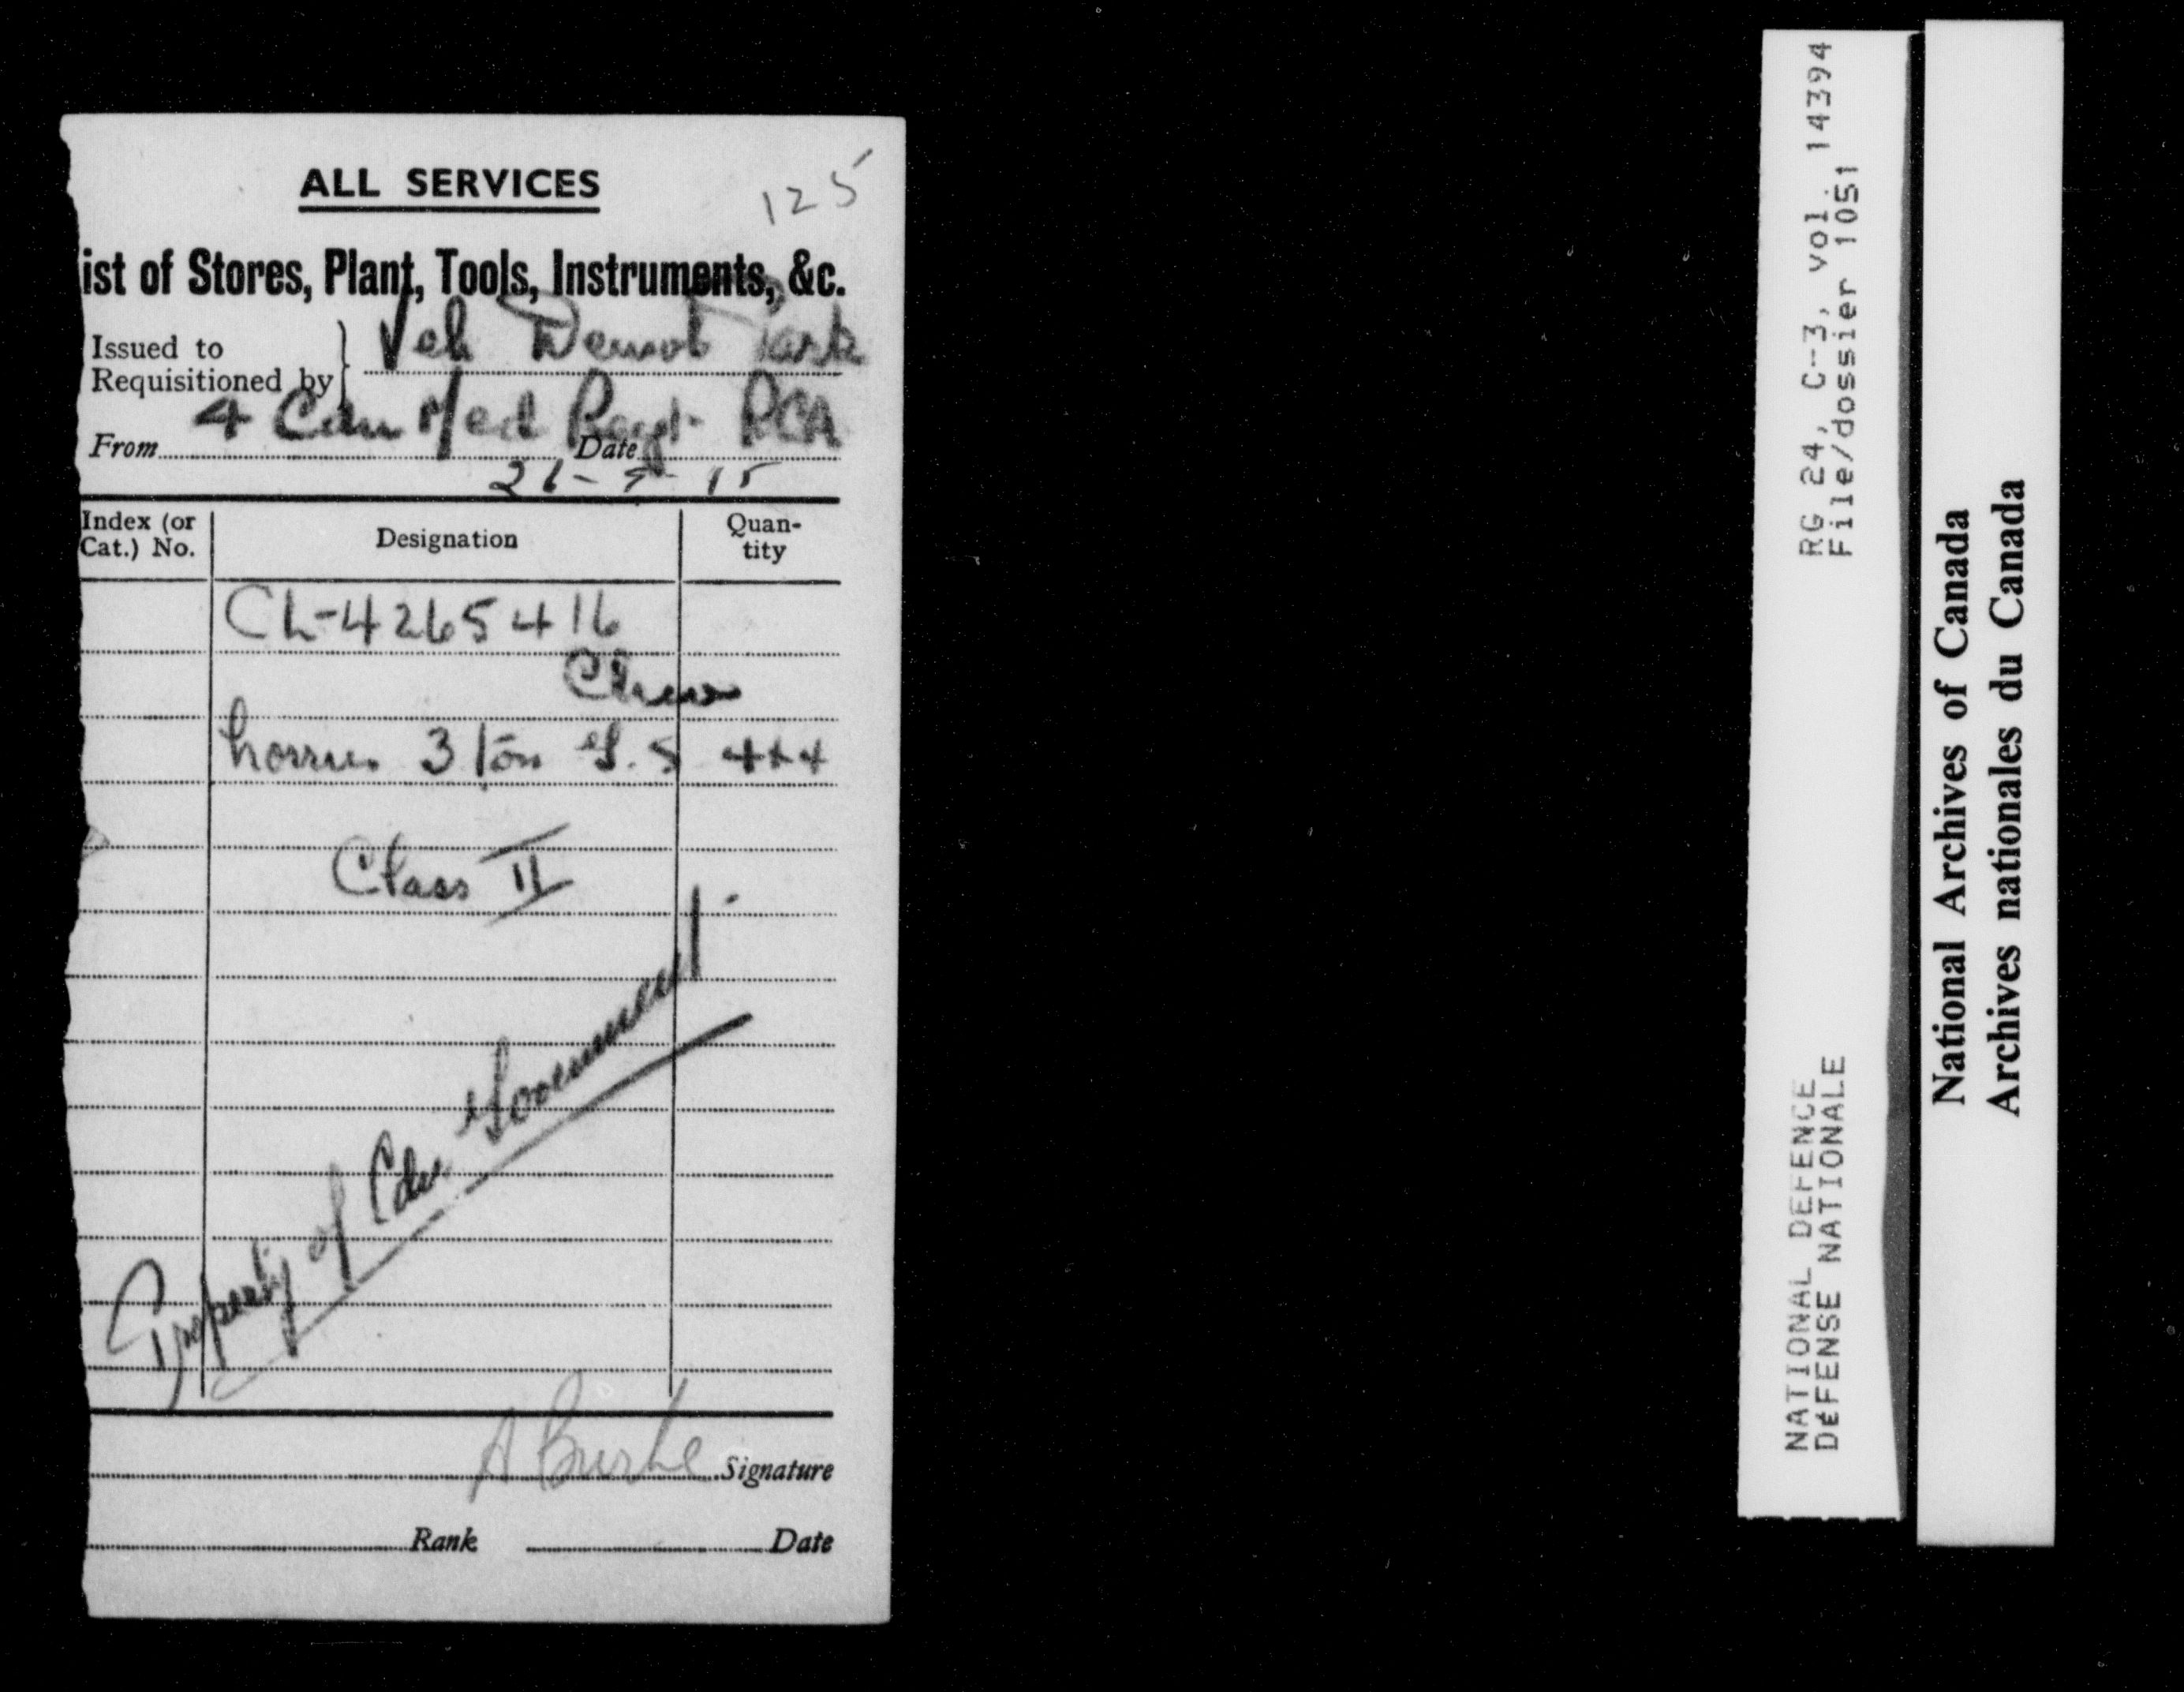 ALL SERVICES
125
ist of Stores, Plant, Tools, Instruments, &c.
Issued to
Requisitioned by } Veh Demob Park
4 Can Med Regt. RCA
From Date
26-5-15
Index (or Cat.) No. Designation Quantity
CL-4265416
Chev
Lorries 3 Ton G.S 4x4
Class II
Property of Cdn Government.
A Burke Signature
Rank Date
RG 24, C-3, vol. 14394
File/dossier 1051
NATIONAL DEFENCE
DÉFENSE NATIONALE
National Archives of Canada
Archives nationales du Canada